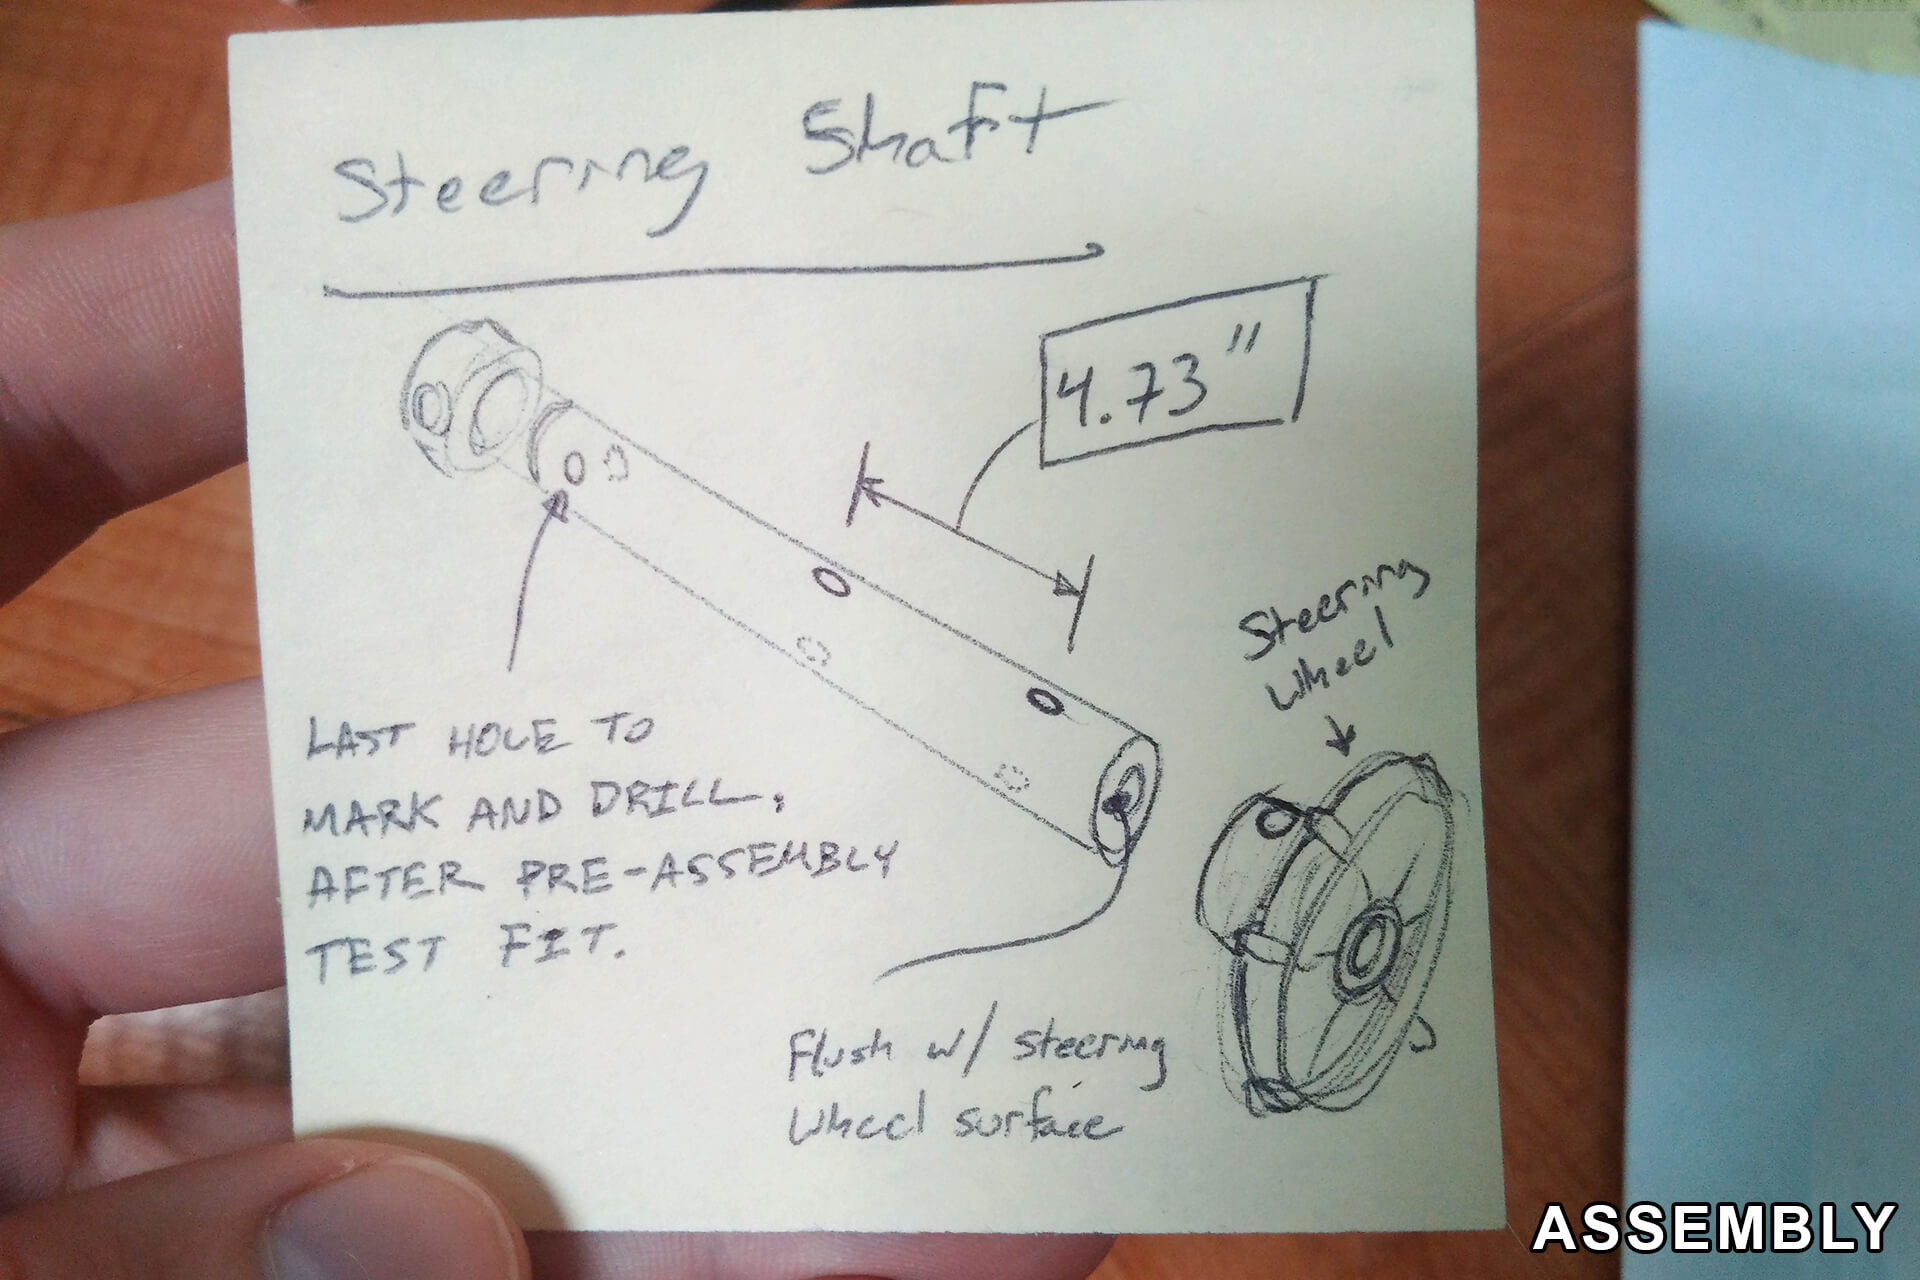 Steering Shaft
4.73"
Steering
Wheel
LAST HOLE TO
MARK AND DRILL,
AFTER PRE-ASSEMBLY
TEST FIT.
Flush w/ steering
wheel surface
ASSEMBLY